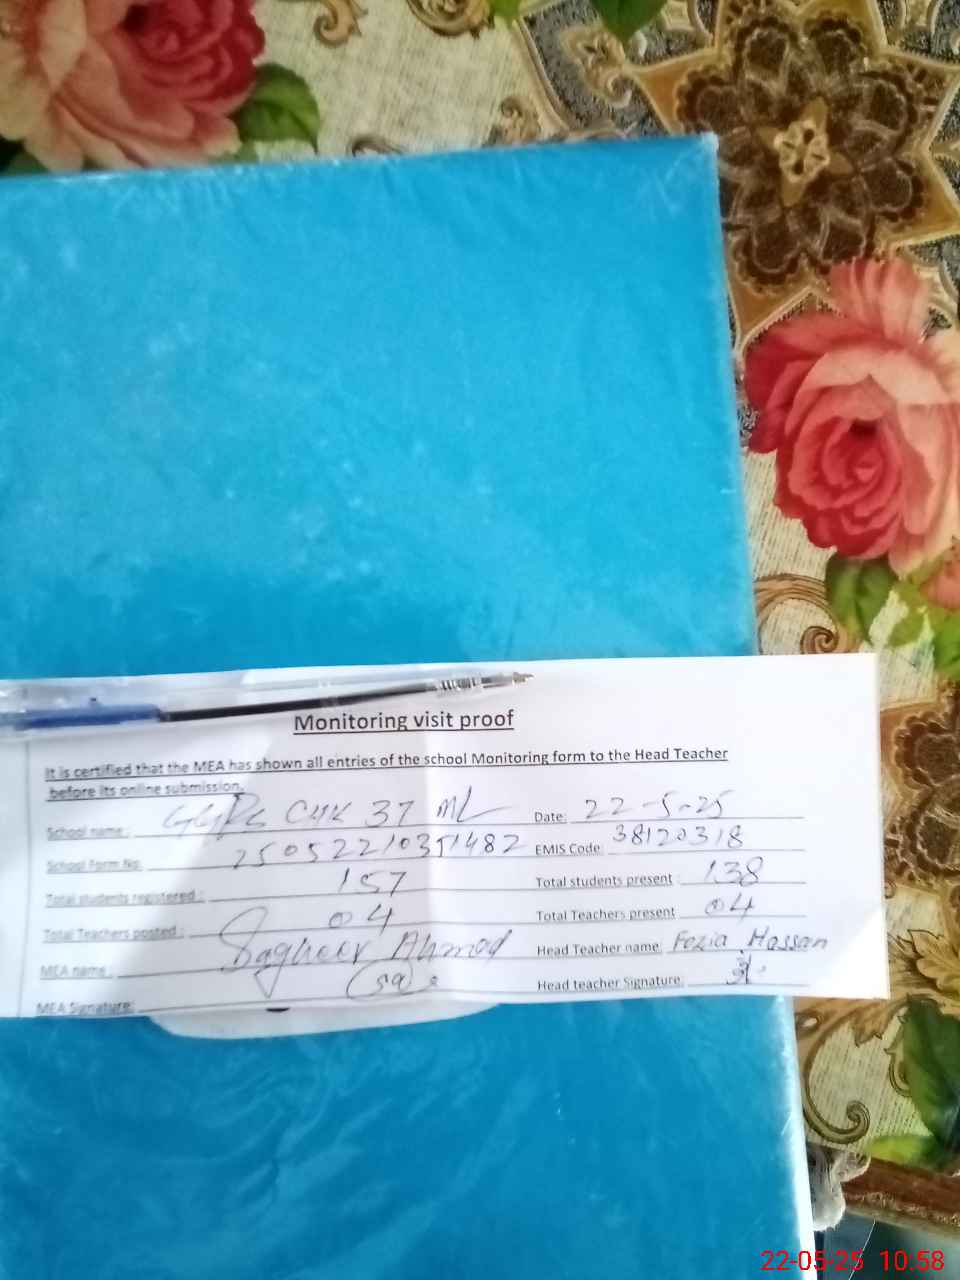 Monitoring visit proof
It is certified that the MEA has shown all entries of the school Monitoring form to the Head Teacher
before its online submission.
School name: GGPS CHK 37 ML Date: 22-5-25
School Form No. 25052210351482 EMIS Code: 38120318
Total students registered: 157 Total students present: 138
Total Teachers posted: 04 Total Teachers present 04
MEA name: Sagheer Ahmad Head Teacher name: Fozia Hassan
MEA Signature: Head teacher Signature:
22-05-25 10:58